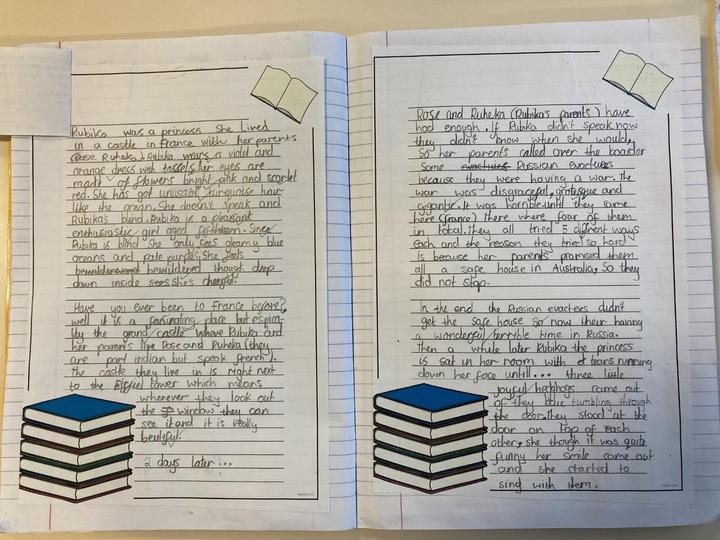 Rubika was a princess She lived
in a castle in france with her parents
(Rose Ruheka). Rubika wears a violet and
orange dress with tassels, her eyes are
made of flowers bright pink and scarlet
red. She has got unusual turquise hair
like the ocean. She doesn't speak and
Rubika's blind. Rubika is a pleasant
enthusiastic girl aged fifthteen. Since
Rubika is blind She only sees gleamy blue
oceans and pale purples. She feels
bewildered though deep
down inside she's cheerful.
Have you ever been to France before?,
well it is a fasinating place but espica-
lly the grand castle where Rubika and
her parents live Rose and Ruheka (they
are part indian but speak french).
The castle they live in is right next
to the Eiffel tower which means
whenever they look out
the window they can
see it and it is really
beutiful.
2 days later...
Rose and Ruheka (Rubika's parents) have
had enough. If Rubika didn't speak now
they didn't know when She would,
So her parents called over the boarder
Some Russian Evactuees
because they were having a war. The
war was disgraceful, grotesque and
gigantic. It was horrible until they came
here (france) there where four of them
in total. They all tried 5 diffrent ways
each and the reason they tried so hard
is because her parents promised them
all a safe house in Australia, So they
did not stop.
In the end the Russian evactees didn't
get the safe house so now their having
a wonderful/terrible time in Russia.
Then a while later Rubika the princess
is sat in her room with tears running
down her face until... three little
joyful hedghogs came out
of they blue tumbling through
the door, they stood at the
door on top of each
other, she though it was quite
funny her smile came out
and she started to
sing with them.